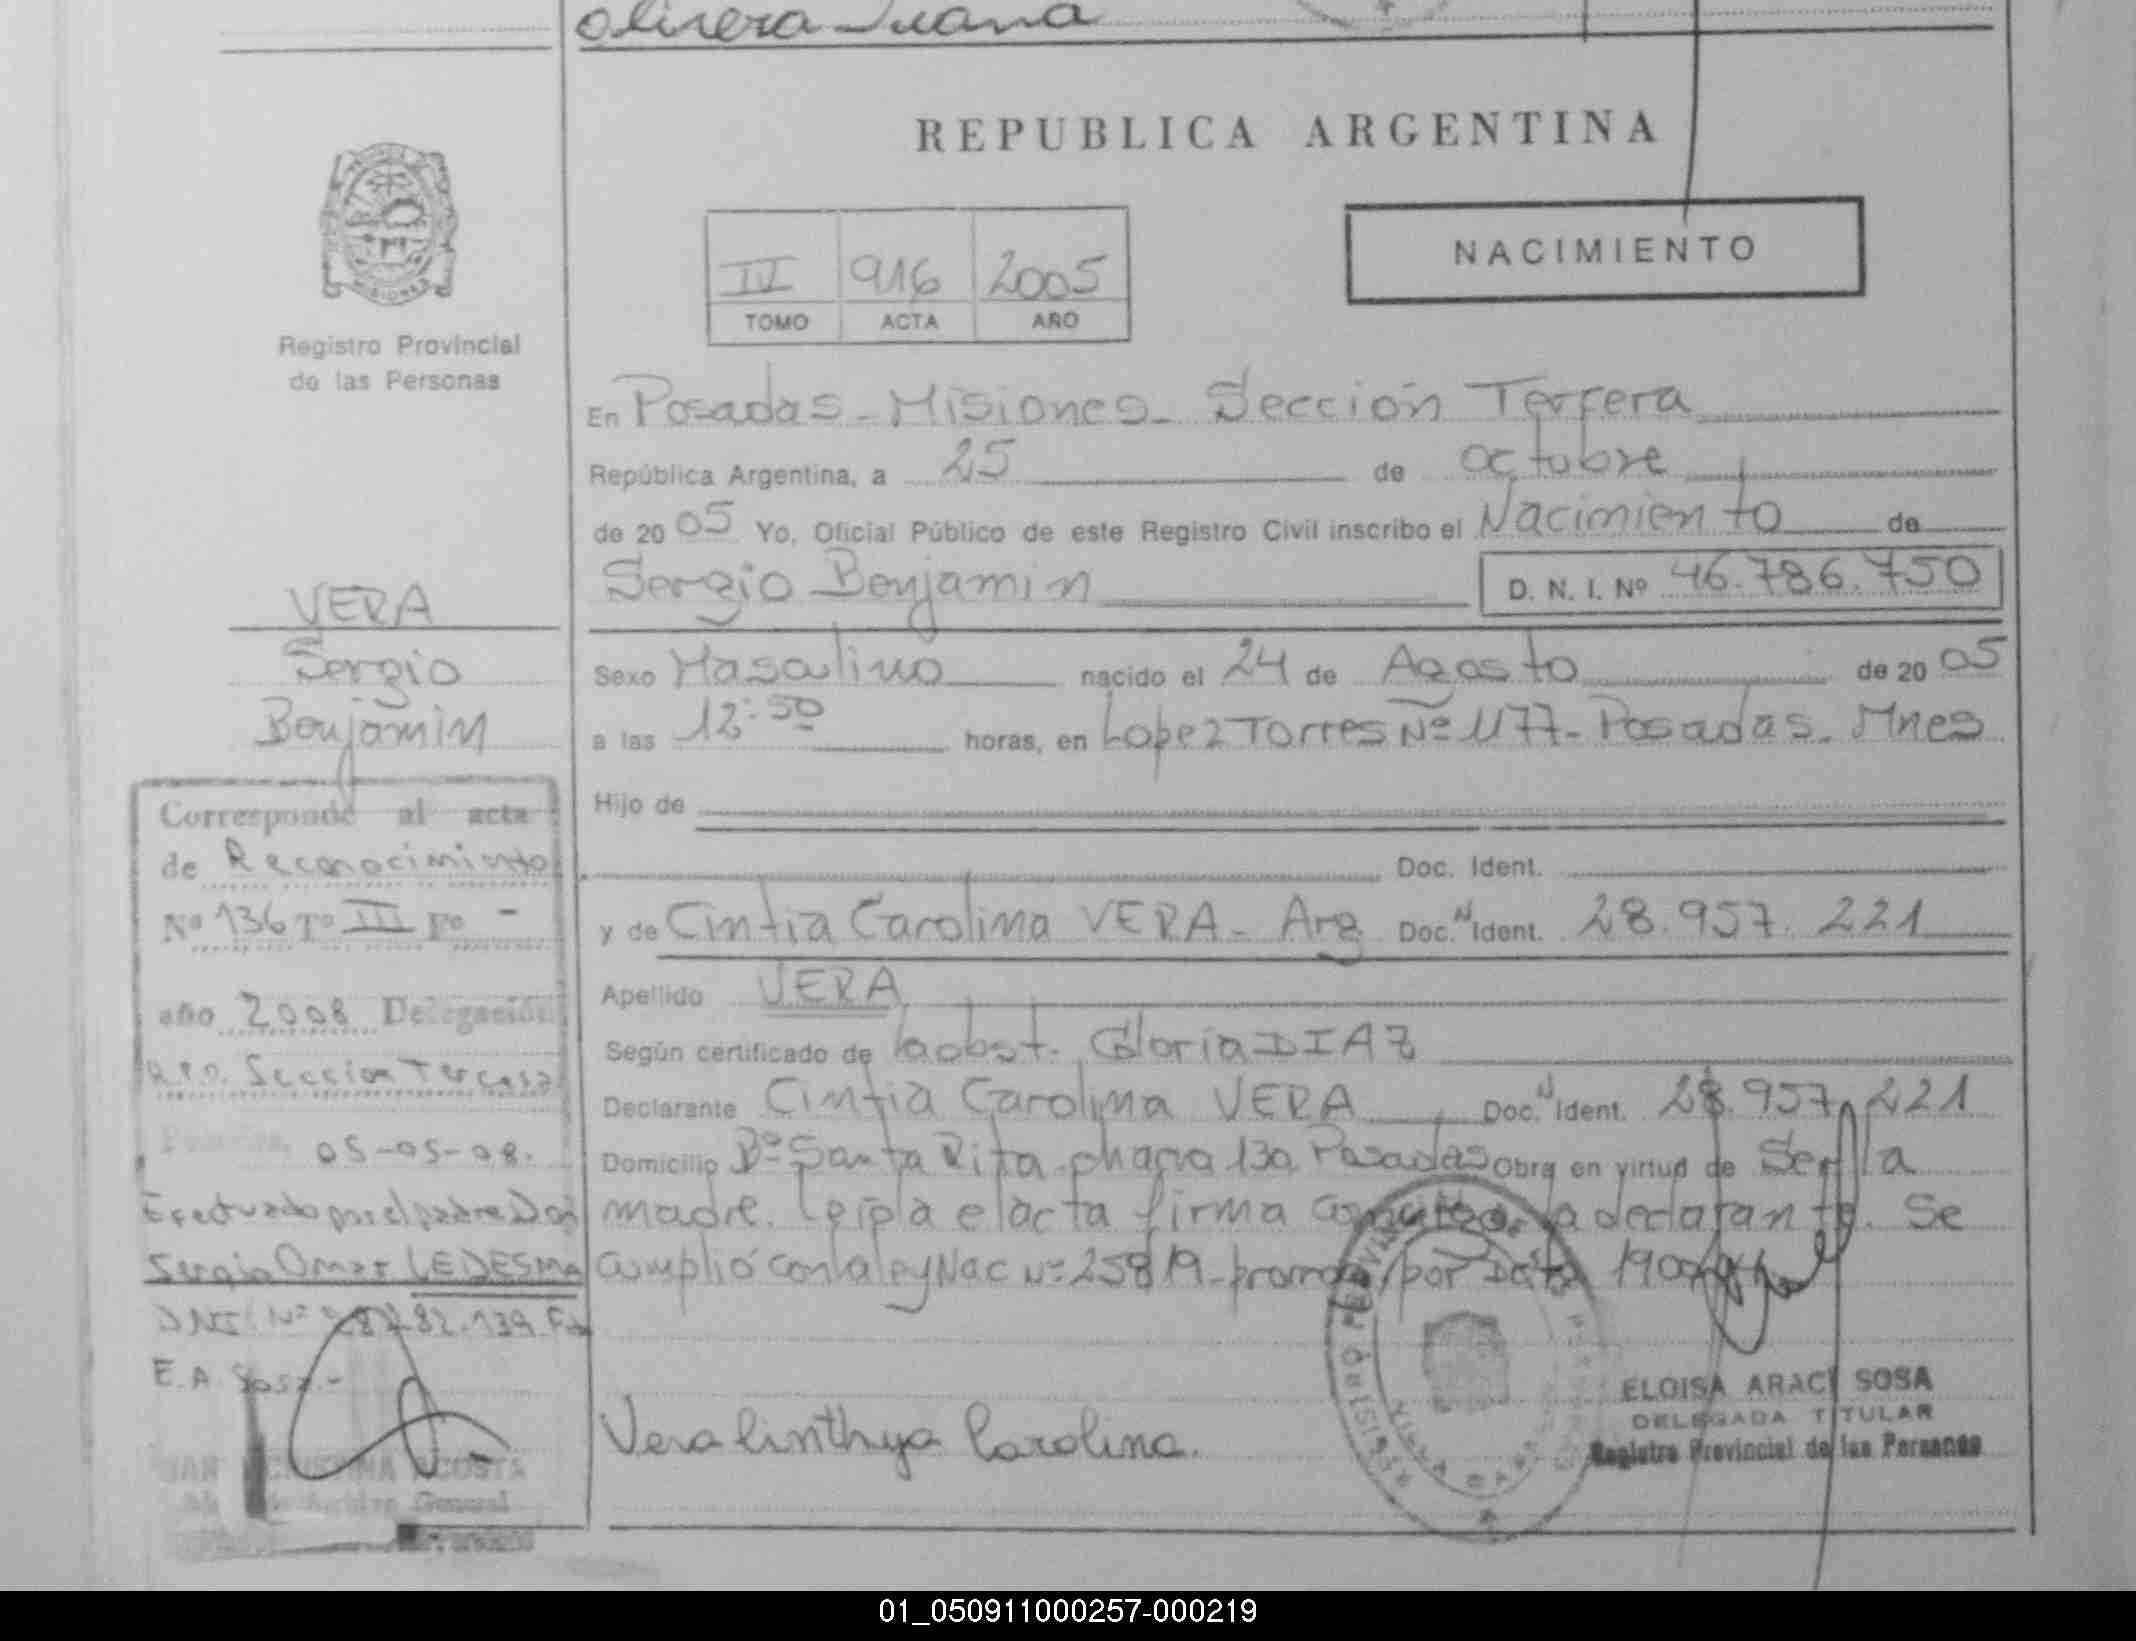 olivera Juana
REPUBLICA ARGENTINA
NACIMIENTO
IV 916 2005
TOMO ACTA AÑO
MISIONES
Registro Provincial
de las Personas
En Posadas - Misiones - Sección Tercera
República Argentina, a 25 de octubre
de 2005 Yo, Oficial Público de este Registro Civil inscribo el Nacimiento de
Sergio Benjamin D. N. I. Nº 46.786.750
VERA
Sergio
Benjamin
Sexo Masculino nacido el 24 de Agosto de 2005
a las 12:50 horas, en Lopez Torres Nº 1177 - Posadas - Mnes
Hijo de
Doc. Ident.
y de Cintia Carolina VERA - Arg Doc. N Ident. 28.957.221
Apellido VERA
Según certificado de la obst. Gloria DIAZ
Declarante Cintia Carolina VERA Doc. N Ident. 28.957.221
Domicilio Bº Santa Rita chacra 130 Posadas Obra en virtud de Ser la
madre. Leída el acta firma conmigo la declarante. Se
cumplió con la ley Nac Nº 25819 - prorrog. por
Corresponde al acta
de Reconocimiento
Nº 136 Tº III Fº -
año 2008 Delegación
R.P.P. Seccion Tercera
Posadas, 05-05-08.
Efectuado por el padre Don
Sergio Omar LEDESMA
DNI. Nº
E.A. Sosa.-
Vera Cinthya Carolina.
ELOISA ARACI SOSA
DELEGADA TITULAR
Registro Provincial de las Personas
CRISTINA ACOSTA
Archivo General
01_050911000257-000219